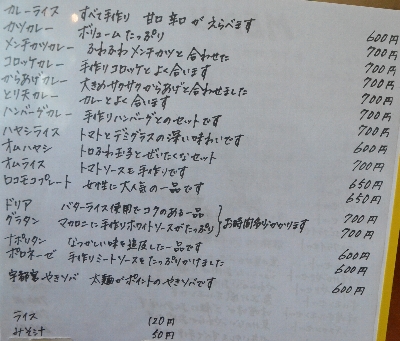 カレーライス すべて手作り 甘口辛口がえらべます 600円
カツカレー ボリュームたっぷり 700円
メンチカツカレー ふわふわメンチカツと合わせた 700円
コロッケカレー 手作りコロッケとよく合います 700円
からあげカレー 大きめサクサクからあげと合わせました 700円
とり天カレー カレーとよく合います 700円
ハンバーグカレー 手作りハンバーグとのセットです 700円
ハヤシライス トマトとデミグラスの深い味わいです 600円
オムハヤシ トロふわ玉子とぜいたくなセット 700円
オムライス トマトソースも手作りです 650円
ロコモコプレート 女性に大人気の一品です 650円
ドリア バターライス使用でコクのある一品 700円
グラタン マカロニに手作りホワイトソースがたっぷり お時間多少かかります 700円
ナポリタン なつかしい味を追及した一品です 600円
ボロネーゼ 手作りミートソースをたっぷりかけました 600円
宇都宮やきソバ 太麺がポイントのやきソバです 600円
ライス 120円
みそ汁 50円